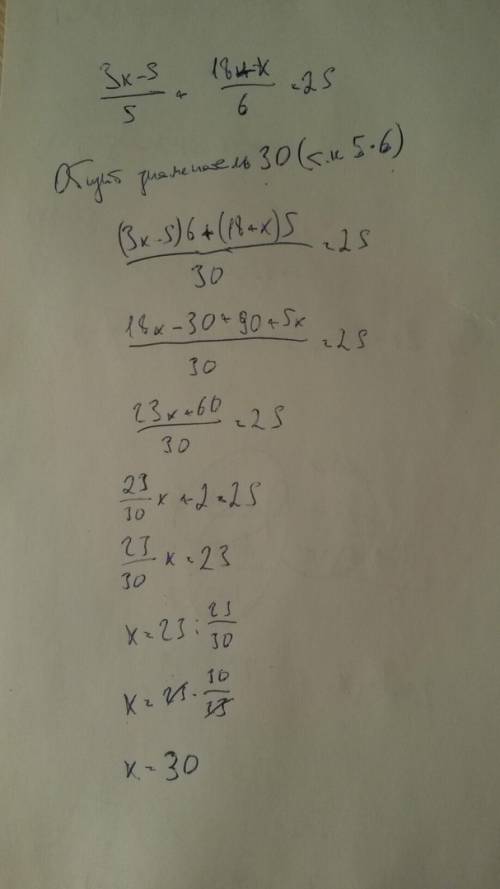 (3x-5)/5 + (18+x)/6 = 25
Общий знаменатель 30 (т.к 5·6)
((3x-5)6+(18+x)5)/30 = 25
(18x-30+90+5x)/30 = 25
(23x+60)/30 = 25
23/30 x + 2 = 25
23/30 x = 23
x = 23 : 23/30
x = 23 · 30/23
x = 30